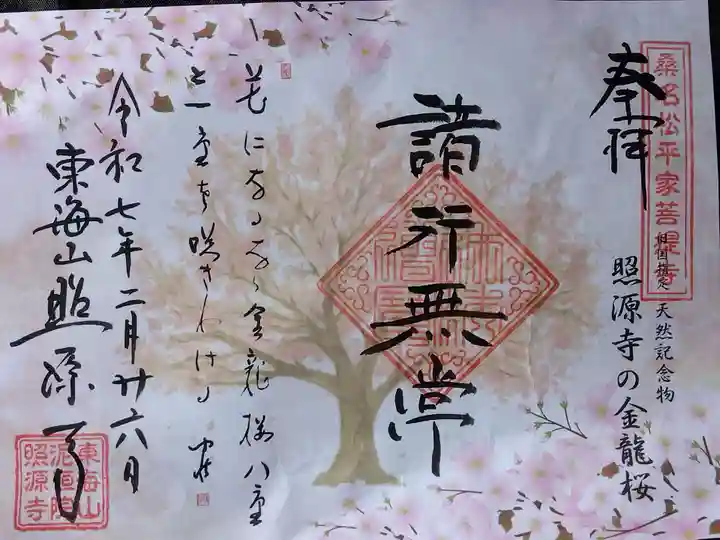 奉拝
桑名松平家菩提寺
天然記念物
照源寺の金龍桜
諸行無常
花になる
金龍桜八重
と一重を咲きわける
令和七年二月廿六日
東海山照源寺
東海山
泥洹院
照源寺